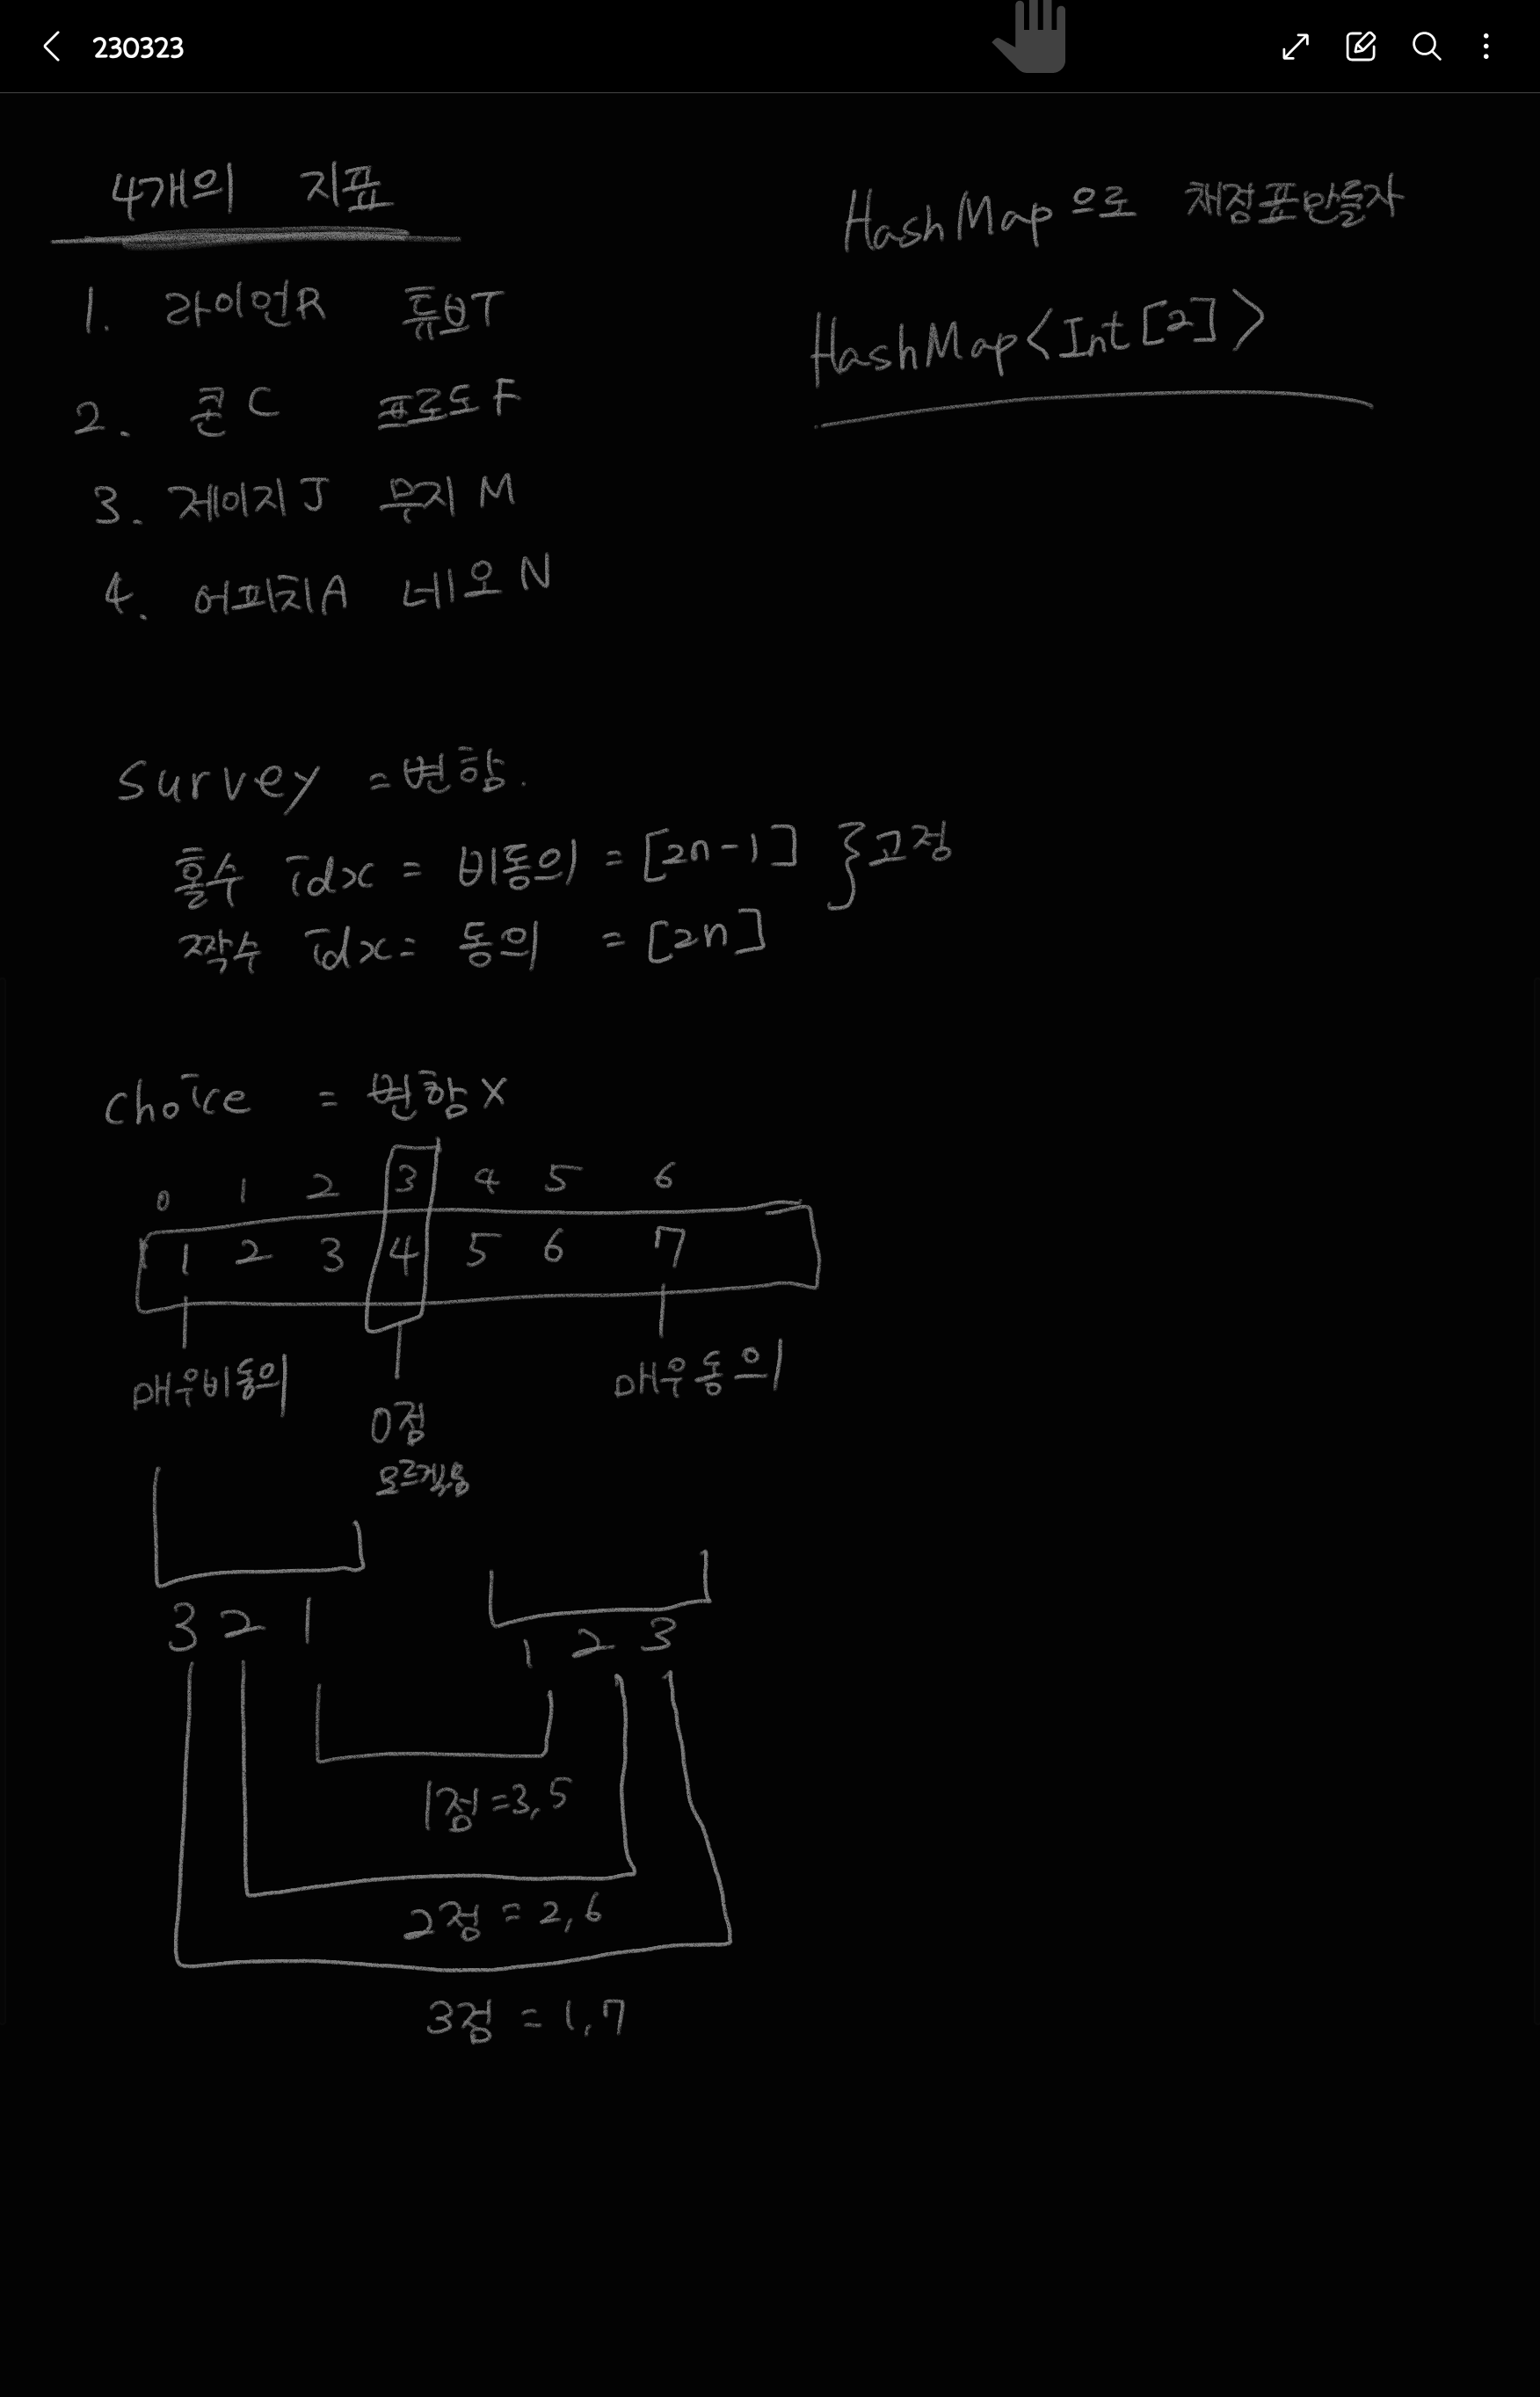 230323
4개의 지표
1. 라이언R 튜브T
2. 콘 C 프로도 F
3. 제이지 J 무지 M
4. 어피치A 네오 N
HashMap으로 채점표만들자
HashMap<Int[2]>
Survey = 변함.
홀수 idx = 비동의 = [2n-1] } 고정
짝수 idx = 동의 = [2n]
choice = 변함 X
0 1 2 3 4 5 6
1 2 3 4 5 6 7
매우비동의
매우동의
0점
모르겠음
3 2 1
1 2 3
1점=3,5
2점 = 2,6
3점 = 1,7